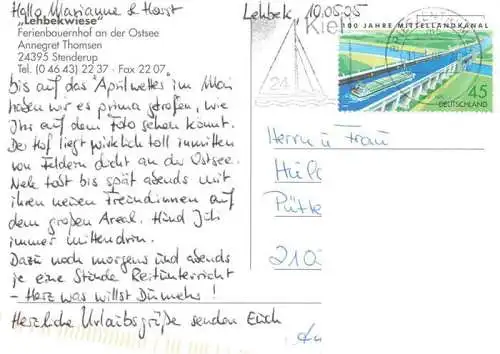 Hallo Marianne & Horst
Lehbek, 10.05.05
"Lehbekwiese"
Ferienbauernhof an der Ostsee
Annegret Thomsen
24395 Stenderup
Tel. (0 46 43) 22 37 · Fax 22 07
bis auf das Aprilwetter im Mai
haben wir es prima getroffen, wie
Ihr auf dem Foto sehen könnt.
Der Hof liegt wirklich toll inmitten
von Feldern dicht an der Ostsee.
Nele tobt bis spät abends mit
ihren neuen Freundinnen auf
dem großen Areal. Hund
immer mittendrin.
Dazu noch morgens und abends
je eine Stunde Reitunterricht
- Herz was willst Du mehr!
Herzliche Urlaubsgrüße senden Euch
Kiel
24
100 JAHRE MITTELLANDKANAL
45
DEUTSCHLAND
Herrn u Frau
Hül
Pütte
210